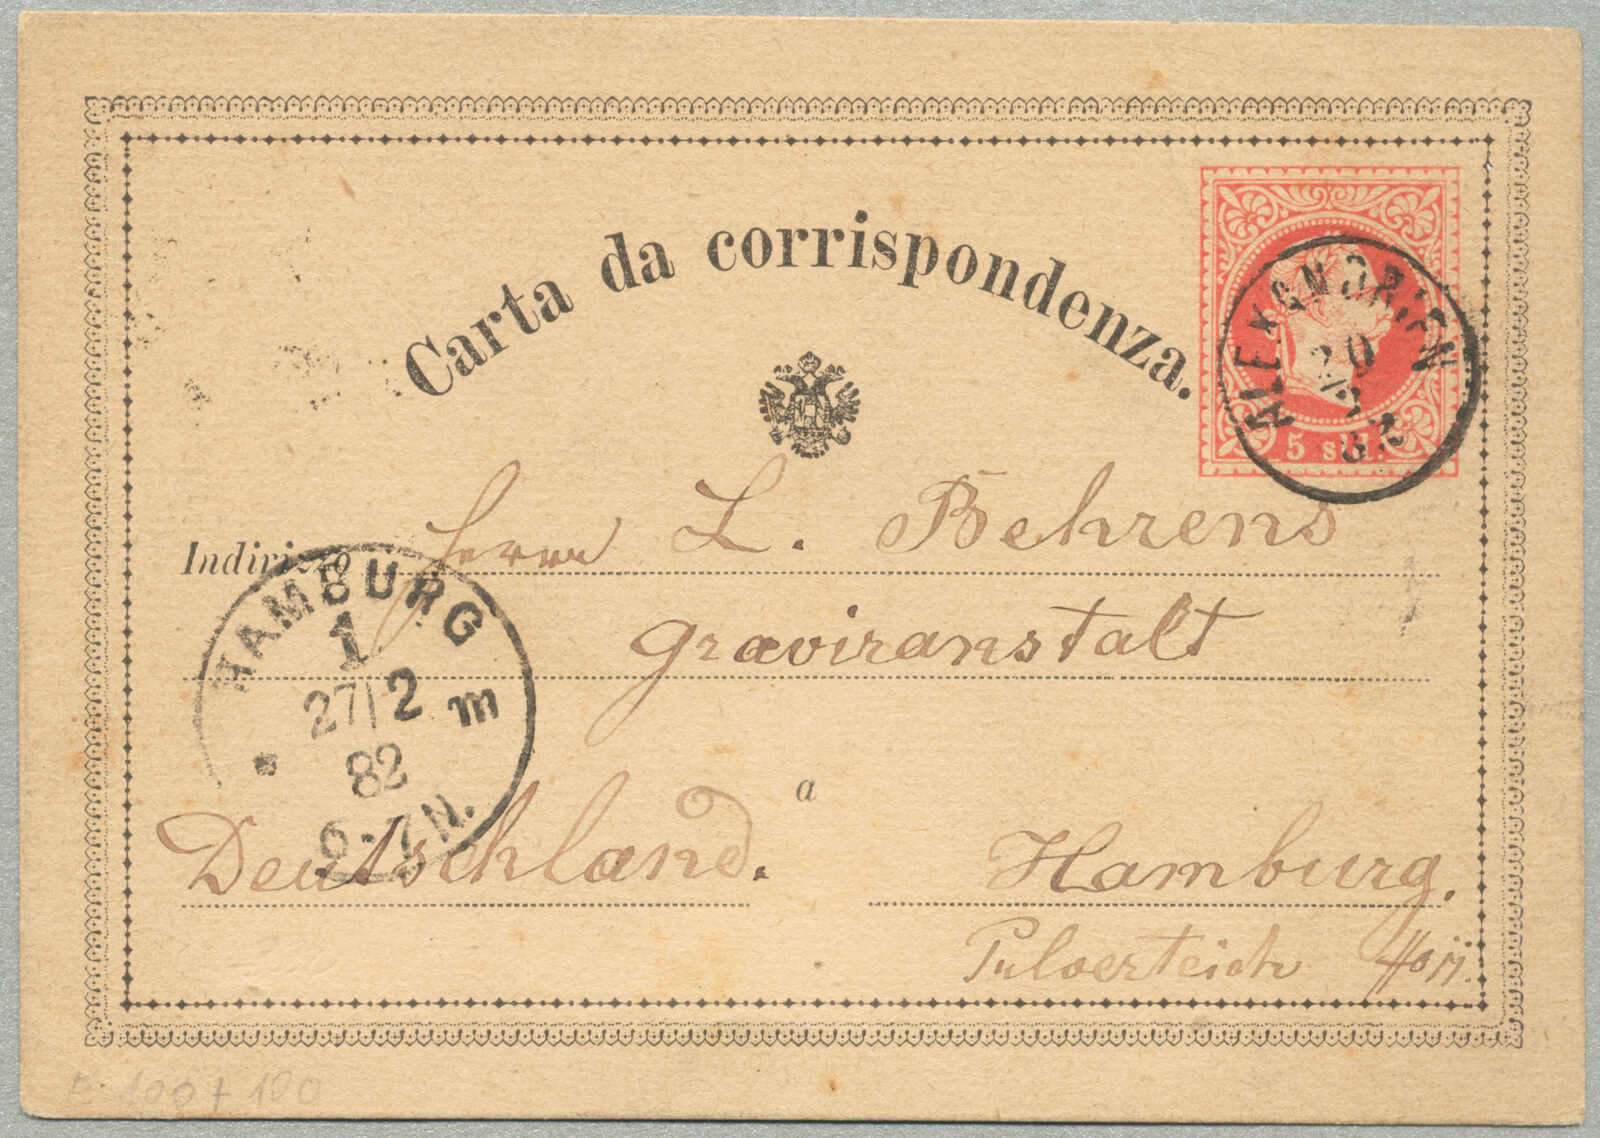 Carta da corrispondenza.
5 sld.
ALEXANDRIEN
20
2
82
Indirizzo
Herrn L. Behrens
Graviranstalt
HAMBURG
1
27/2 m
82
6-7N.
a
Deutschland. Hamburg.
Pulverteich
100+100